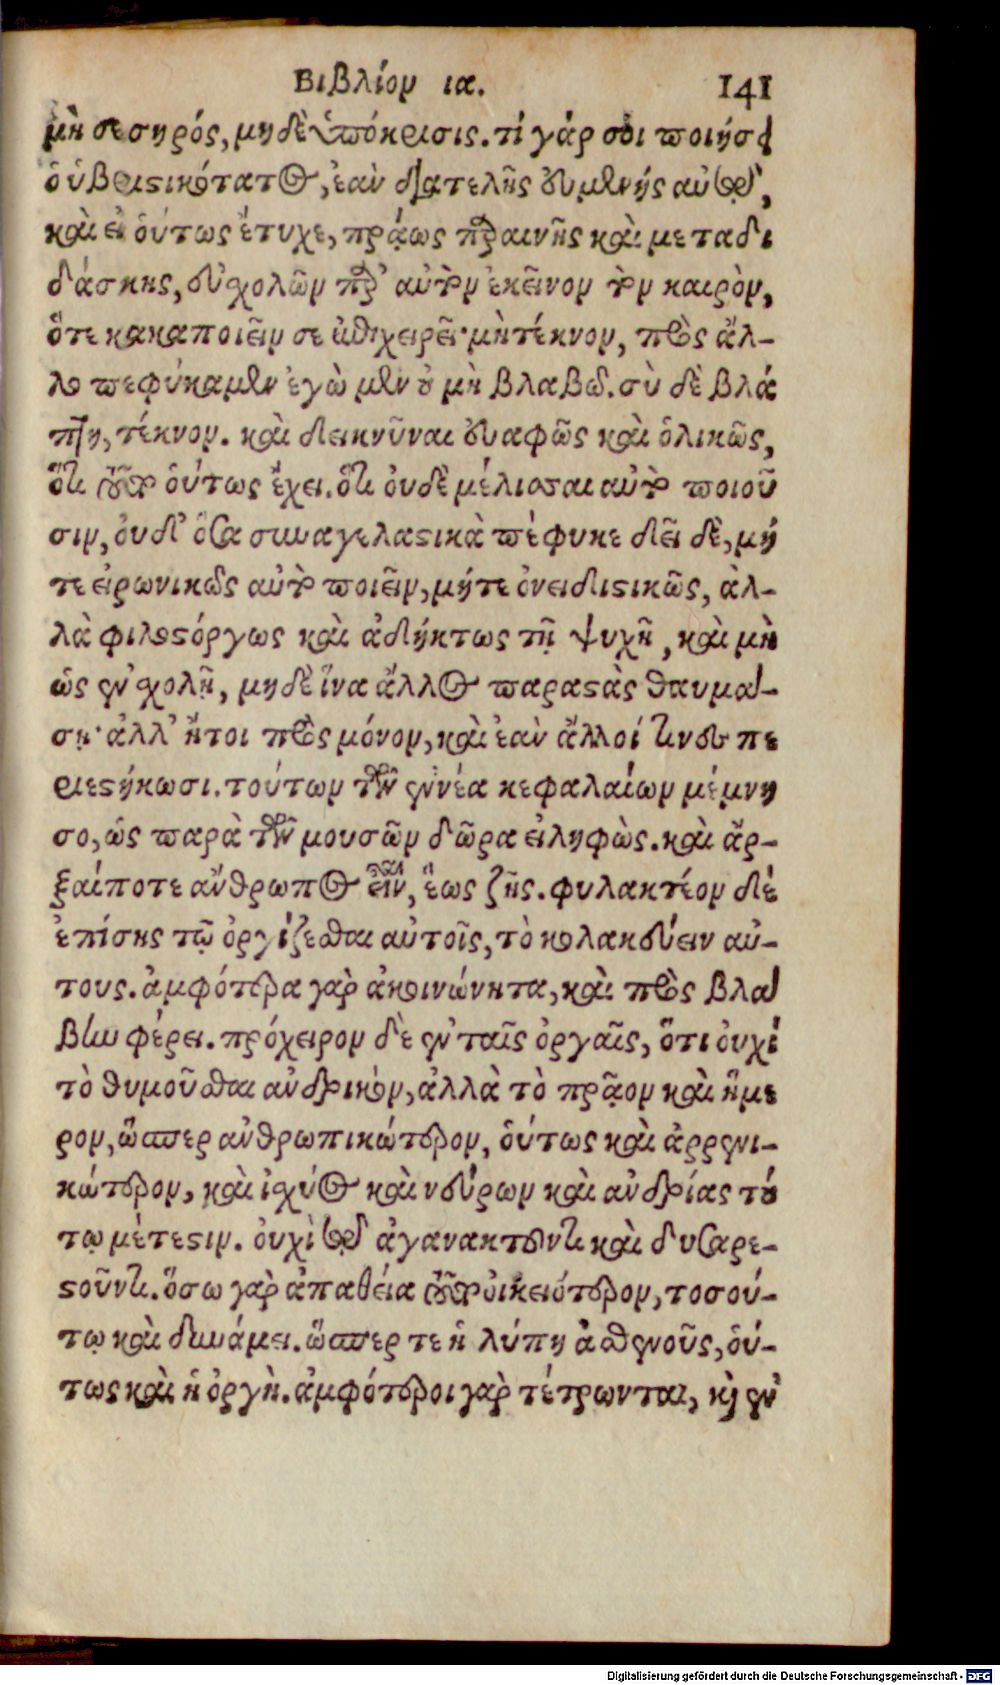 Βιβλίον ια. 141
μὴ σεσηρός, μηδὲ ὑπόκρισις. τί γάρ σοι ποιήσει
ὁ ὑβριστικότατος, ἐὰν διατελῇς εὐμενής αὐτῷ,
καὶ εἰ ὁύτως ἔτυχε, πρᾴως παραινῇς καὶ μεταδι
δάσκῃς, εὐσχολῶν παρ’ αὐτὸν ἐκεῖνον τὸν καιρὸν,
ὅτε κακαποιεῖν σε ἐπιχειρεῖ· μὴ τέκνον, πρὸς ἄλ-
λο πεφύκαμεν ἐγὼ μὲν οὐ μὴ βλαβῶ. σὺ δὲ βλά
πτῃ, τέκνον. καὶ δεικνῦναι εὐαφῶς καὶ ὁλικῶς,
ὅτι τοῦτο ὁύτως ἔχει. ὅτι ὀυδὲ μέλισσαι αὐτὸ ποιοῦ
σιν, ὀυδ’ ὅσα συναγελαστικὰ πέφυκε δεῖ δὲ, μή
τε εἰρωνικῶς αὐτὸ ποιεῖν, μήτε ὀνειδιστικῶς, ἀλ-
λὰ φιλοστόργως καὶ ἀδήκτως τῇ ψυχῇ, καὶ μὴ
ὡς ἐν σχολῇ, μηδὲ ἵνα ἄλλος παραστὰς θαυμά-
σῃ· ἀλλ’ ἤτοι πρὸς μόνον, καὶ ἐὰν ἄλλοί τινες πε
ριεστήκωσι. τούτων τῶν ἐννέα κεφαλαίων μέμνη
σο, ὡς παρὰ τῶν μουσῶν δῶρα εἰληφὼς. καὶ ἄρ-
ξαί ποτε ἄνθρωπος εἶναι, ἕως ζῇς. φυλακτέον δέ
ἐπίσης τῷ ὀργίζεσθαι αὐτοῖς, τὸ κολακεύειν αὐ-
τους. ἀμφότερα γὰρ ἀκοινώνητα, καὶ πρὸς βλά
βην φέρει. πρόχειρον δὲ ἐν ταῖς ὀργαῖς, ὅτι ὀυχί
τὸ θυμοῦσθαι ἀνδρικόν, ἀλλὰ τὸ πρᾷον καὶ ἥμε
ρον, ὥσπερ ἀνθρωπικώτερον, ὁύτως καὶ ἀρρενι-
κώτερον, καὶ ἰσχύος καὶ νεύρων καὶ ἀνδρίας τού
τῳ μέτεστιν. ὀυχὶ τῷ ἀγανακτοῦντι καὶ δυσαρε-
στοῦντι. ὅσω γὰρ ἀπαθείᾳ τοῦτο ὀικειότερον, τοσού-
τῳ καὶ δυνάμει. ὥσπερ τε ἡ λύπη ἀσθενοῦς, ὁύ-
τως καὶ ἡ ὀργὴ. ἀμφότεροι γὰρ τέτρωνται, καὶ ἐν
Digitalisierung gefördert durch die Deutsche Forschungsgemeinschaft - DFG